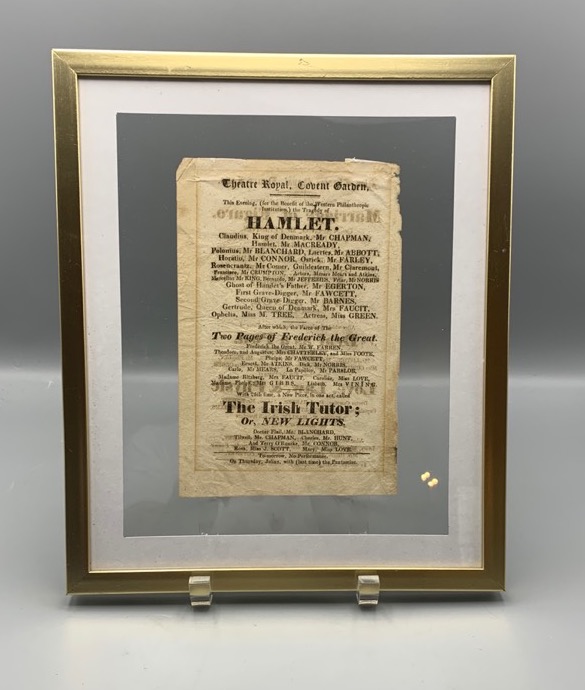 Theatre Royal, Covent Garden,
This Evening, (for the Benefit of the Western Philanthropic
Institution,) the Tragedy of
HAMLET.
Claudius, King of Denmark, Mr CHAPMAN,
Hamlet, Mr. MACREADY,
Polonius, Mr BLANCHARD, Laertes, Mr ABBOTT,
Horatio, Mr CONNOR, Osrick, Mr FARLEY,
Rosencrantz, Mr Comer, Guildestern, Mr Claremont,
Mr CRUMPTON, Actors, Messrs and Atkins,
Marcellus Mr KING, Bernardo, Mr JEFFERIES, Friar, Mr NORRIS
Ghost of Hamlet's Father, Mr EGERTON,
First Grave-Digger, Mr FAWCETT,
Second Grave Digger, Mr BARNES,
Gertrude, Queen of Denmark, Mrs FAUCIT,
Ophelia, Miss M. TREE, Actress, Miss GREEN.
After which, the Farce of The
Two Pages of Frederick the Great.
Frederick the Great, Mr W. FARREN,
Theodore, and Augustus, Mrs CHATTERLEY, and Miss FOOTE,
Phelps Mr FAWCETT,
Ernest, Mr ATKINS, Mr NORRIS,
Carlo, Mr MEARS, La Papillon, Mr
Madame Ritzberg, Mrs FAUCIT, Caroline, Miss LOVE,
Madame Mrs GIBBS, Lisbeth, Mrs VINING.
With time, a New Piece, in one act, called
The Irish Tutor;
Or, NEW LIGHTS.
Doctor Flail, Mr. BLANCHARD,
Tillwell, Mr. CHAPMAN, Charles, Mr. HUNT,
And Terry O'Rourke, Mr. CONNOR,
Rosa, Miss J. SCOTT, Mary, Miss LOVE.
Tomorrow, No Performance.
On Thursday, with (last time) the Pantomime.